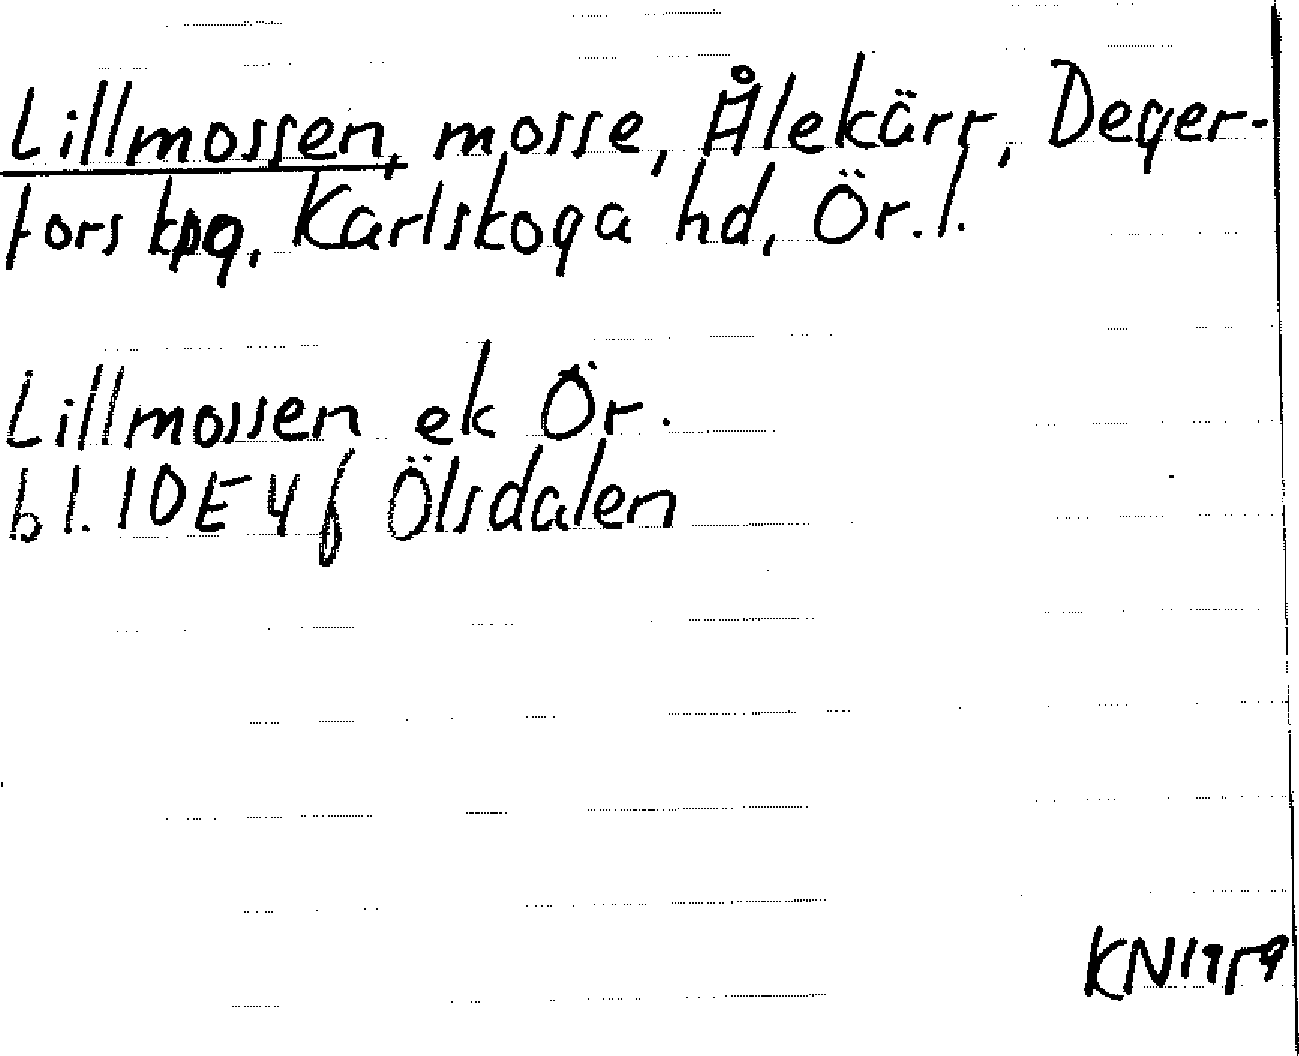 Lillmossen, mosse, Ålekärr, Deger-
fors kpg, Karlskoga hd, Ör. l.
Lillmossen ek Ör.
bl. 10E4f Ölsdalen
KN1959